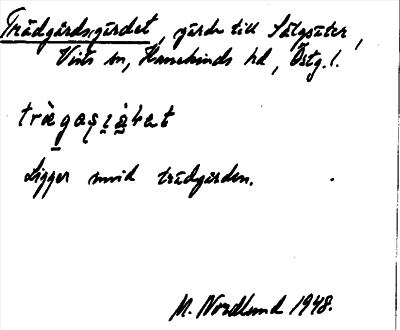 Trädgårdsgärdet, gärde till Sätgsäter,
Vists sn, Hanekinds hd, Östg.l.
Ligger invid trädgården.
M. Nordlund 1948.